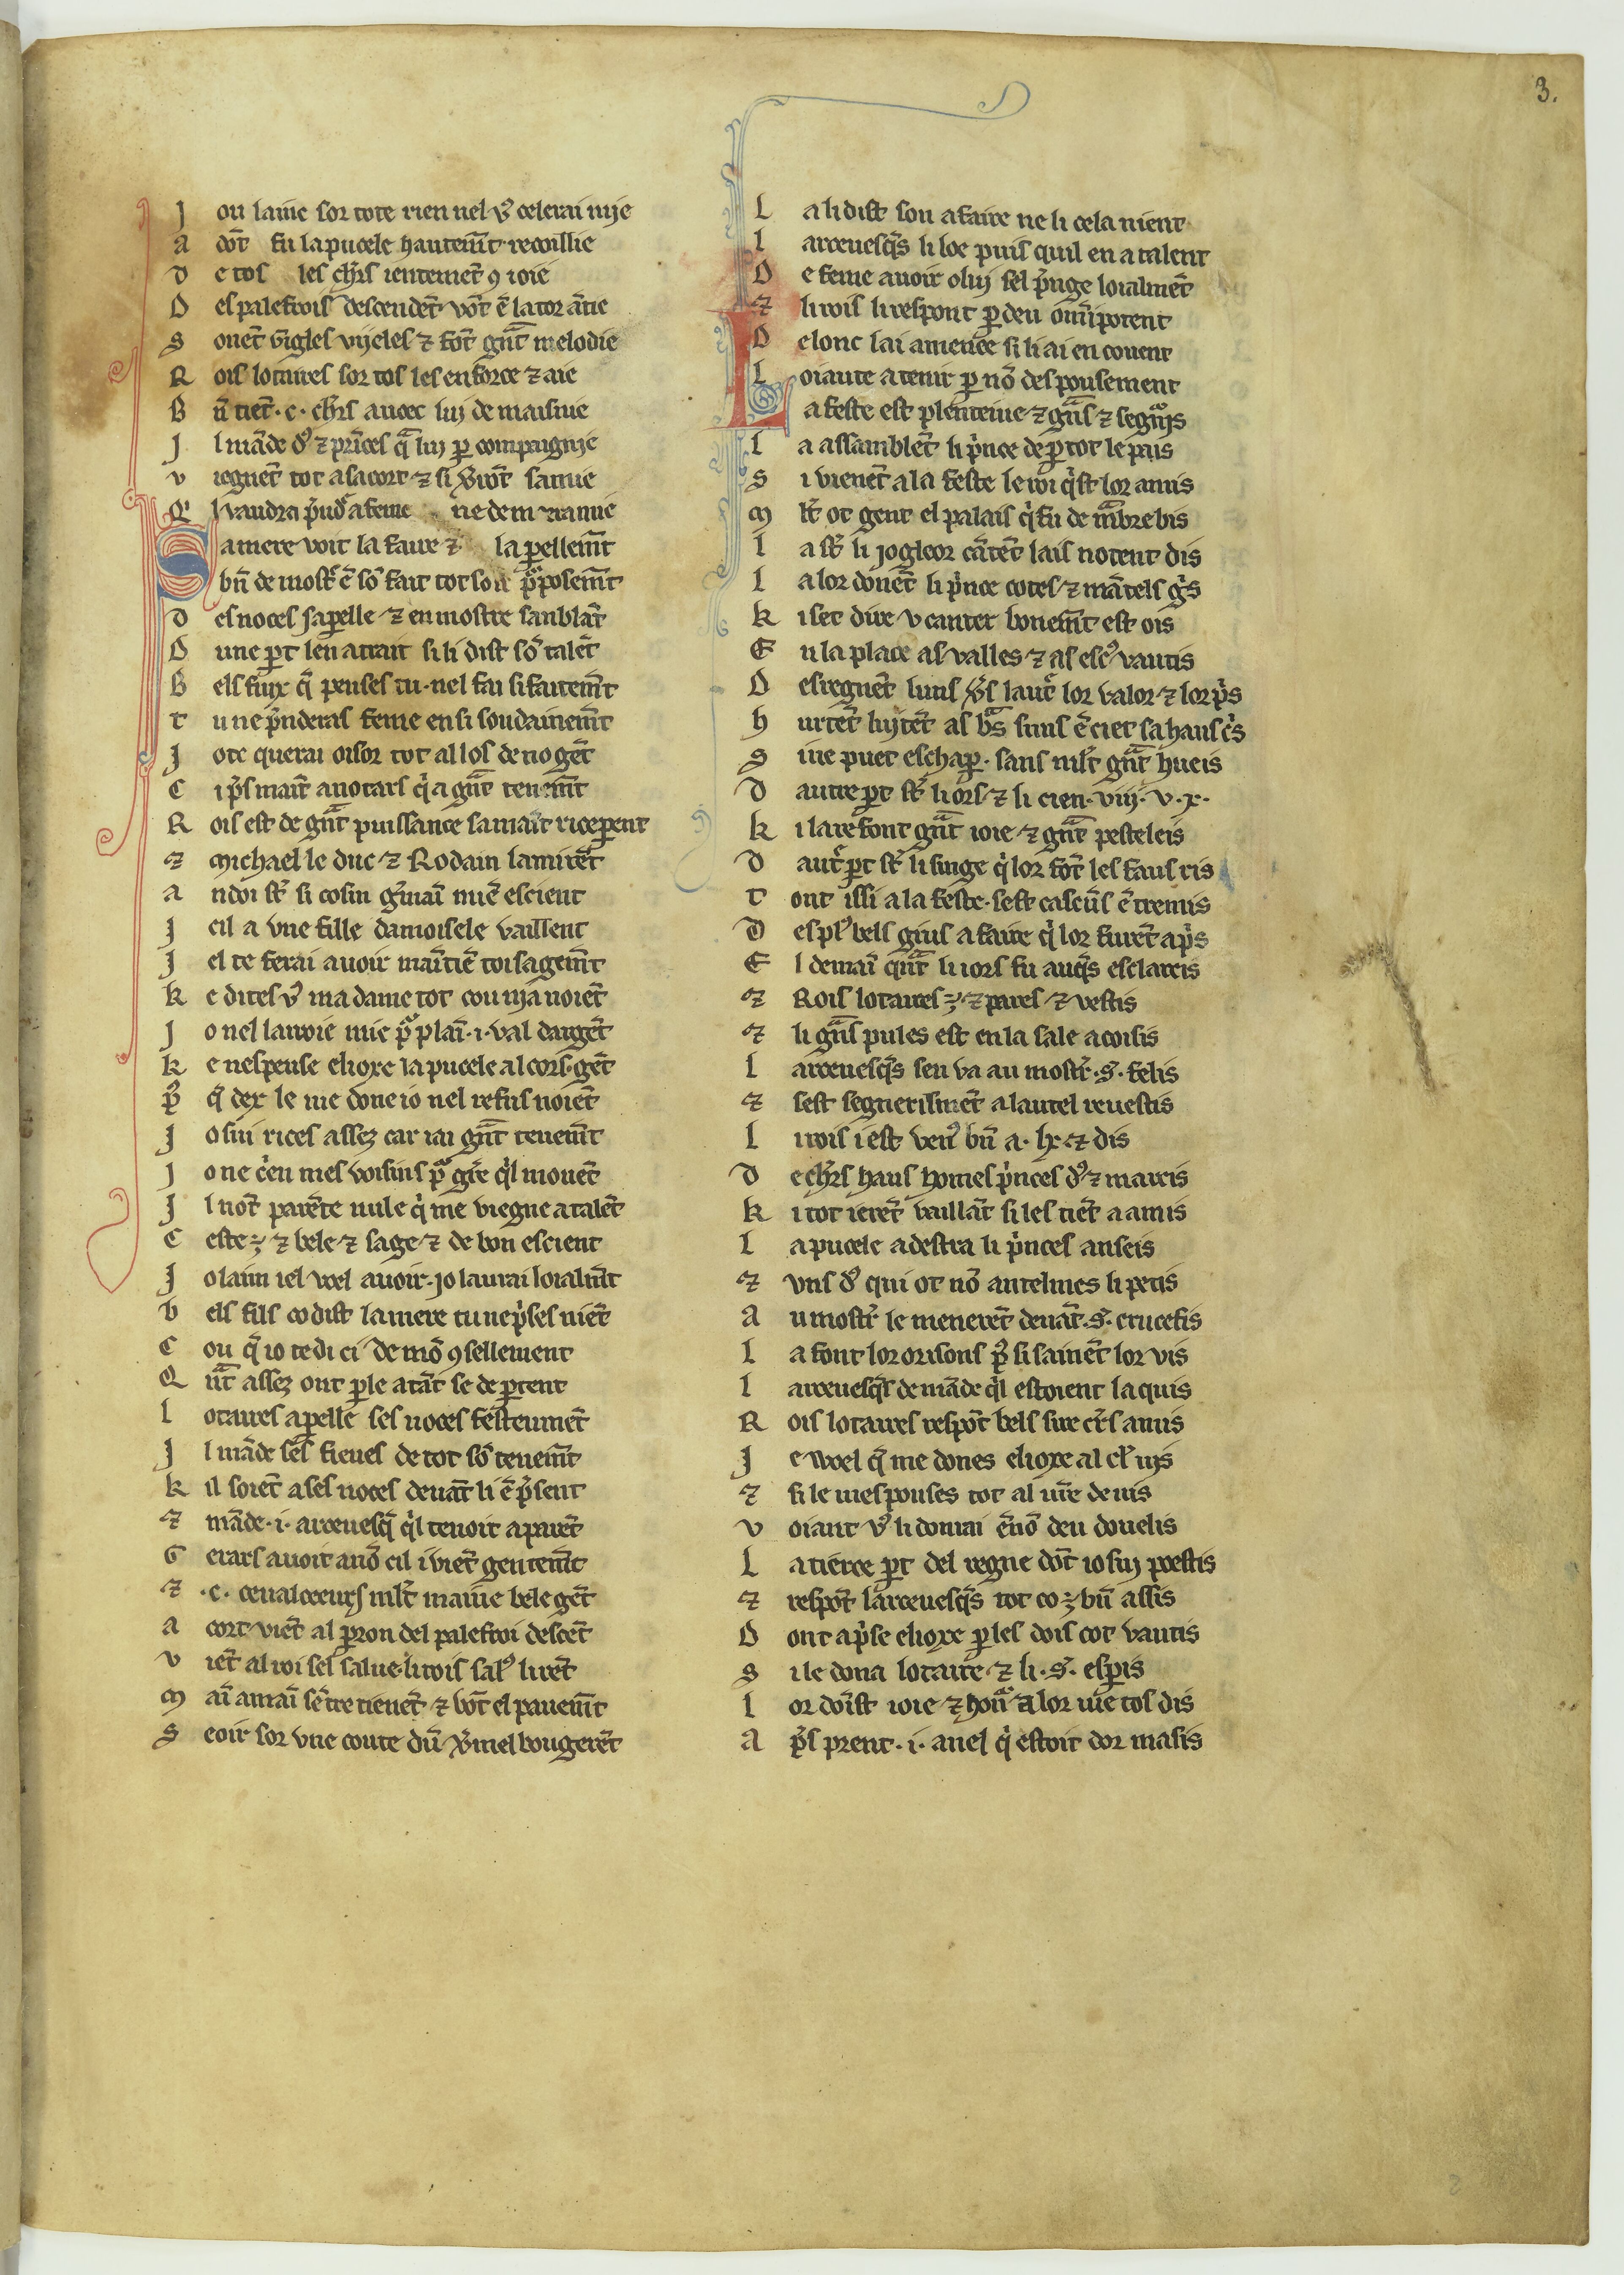 3.
J ou lainc sor tote rien nel vͦ celerai mije
a dōt fu la pucele hautemt̄ recoillie
d e tos les chrs̄ ientemēt ꝯ ioie
D es palefrois descendēt vōt ē la tor ātie
S onēt gigles vijeles ⁊ fōt gn̄t melodie
R ois lotaires sor tos les enforce ⁊ aie
B n̄ tiēt .c. chrs̄ auoec luj de maisnie
J l māde dͦ ⁊ pn̄ces q̄ luj ꝑ compaignie
v iegnēt tot a sa cort ⁊ si v̄rōt samie
Q
S a mere voit la faire ⁊ la pellemt̄
bn̄ de most̄ ē sō fait tot son ꝓposemt̄
d es noces sapelle ⁊ en mostre sanblāt
D une ꝑt len atrait si li dist sō talēt
B els fiux q̄ penses tu . nel fai si faitemt̄
t u ne pn̄deras feme ensi soudainemt̄
J ote querai oisor tot al los de no gēt
C i pr̄s maīt a notars q̇ a gn̄t tenemt̄
R ois est de gn̄t puissance samaīt rice ꝑent
⁊ Michael le duc ⁊ Rodain lamirēt
a ndoi st̄ si cosin gm̄aī miē escient
J cil a vne fille damoisele vaillent
J el te ferai auoir maītiē toi sagemt̄
k e dites vͦ ma dame tot cou nja noiēt
J o nel lairoie mie ꝓ plaī .i. val dargēt
k e nespeuse elioxe la pucele al cors gēt
pͦ q̄ dex le me done io nel refus noiēt
J o sui rices assez car iai gn̄t tenemt̄
J o ne criē mes voisins ꝓ gr̄e q̇l mouēt
J l nōt parēte nule q̇ me viegne a talēt
C este ꝫ ⁊ bele ⁊ sage ⁊ de bon escient
J o laim iel voel auoir . jo laurai loialmt̄
b els fils co dist la mere tu ne ṗses niēt
C ou q̄ io te di ci de mō ꝯsellement
Q n̄t assez ont ꝑle atāt se de ꝑtent
l otaires apelle ses noces festeumēt
J l māde ses fieues de tot sō tenemt̄
k il soiēt a ses noces deuāt li ē pr̄sent
⁊ māde .i. arceuesq̄ q̇l tenoit a parēt
G erars auoit a nō cil i viēt gentemt̄
⁊ .c. ceualceeurs mlt̄ maine bele gēt
a cort viēt al ꝑron del palefroi descēt
v iēt al roi sel salue . li rois salͦ li rēt
M aī a maī sētre tienēt ⁊ vōt el pauemt̄
S eoir sor vne coute dū v̄mel bougerēt
L a li dist son afaire ne li cela nient
l arceuesq̄s li loe puis quil en a talent
D e feme auoir oluj sel pn̄ge loialmēt
⁊ li rois li respont ꝑ deu omn̄ipotent
D elonc lai amenee si li ai en couent
L oiaute a tenir ꝑ nō despousement
L a feste est plenteiue ⁊ gn̄s ⁊ segnͦijs
l a assamblēt li pn̄ce de ꝑ tot le pais
s i vienēt a la feste le roi q̇st lor amis
M lt̄ ot gent el palais q̇ fu de mābre bis
l a st̄ li jogleor cātēt lais notent dis
l a lor donēt li pn̄ce cotes ⁊ mātels gs̄
k i set dire v canter bonemt̄ est ois
E n la place as valles ⁊ as escͦ vautis
D esregnēt luns v̄s lautͤ lor valor ⁊ lor pͥs
h urtēt luitēt as bͣs
S iue puet eschaꝑ . sans mlt̄ gn̄t hueis
D autre ꝑt st̄ li ors ⁊ li cien .viij. v .x.
k i la refont gn̄t ioie ⁊ gn̄t pesteleis
d autͤ ꝑt st̄ li singe q̇ lor fōt les faus ris
t ont issi a la feste . sest cascūs ētremis
D es plͦ bels gius a faire q̇ lor furēt ap̄s
E l demaī qn̄t li iors fu auq̄s esclarcis
⁊ Rois lotaires ꝫ ⁊ pares ⁊ vestis
⁊ li gn̄s pules est en la sale acoisis
l arceuesq̄s sen va au mostͬ .s̄. felis
⁊ sest segnerilmēt a lautel reuestis
l i rois i est venͦ bn̄ a .lx. ⁊ dis
D e chrs̄ haus homes pn̄ces dͦ ⁊ marcis
k i tot ierēt vaillāt si les tiēt a amis
l a pucele adestra li pn̄ces anseis
⁊ vns dͦ qui ot nō antelmes li petis
A u mostͬ le menerēt deuāt .s̄. crucefis
l a font lor orisons pͦ si sainēt lor vis
l arceuesq̄s demāde q̇l estoient la quis
R ois lotaires respōt bels sire crs̄ amis
J e voel q̄ me dones elioxe al cl̄ vijs
⁊ si le mespouses tot al nr̄e deuis
v oiant vͦ li donrai ē nō deu douelis
L a tierce ꝑt del regne dōt io sui poestis
⁊ respōt larceuesq̄s tot co ꝫ bn̄ assis
D ont ap̄se elioxe ꝑ les dois cot vautis
S i le dona lotaire ⁊ li .s̄. espis
l or doīst ioie ⁊ honͦ a lor vie tos dis
A pr̄s prent .i. anel q̇ estoit dor masis